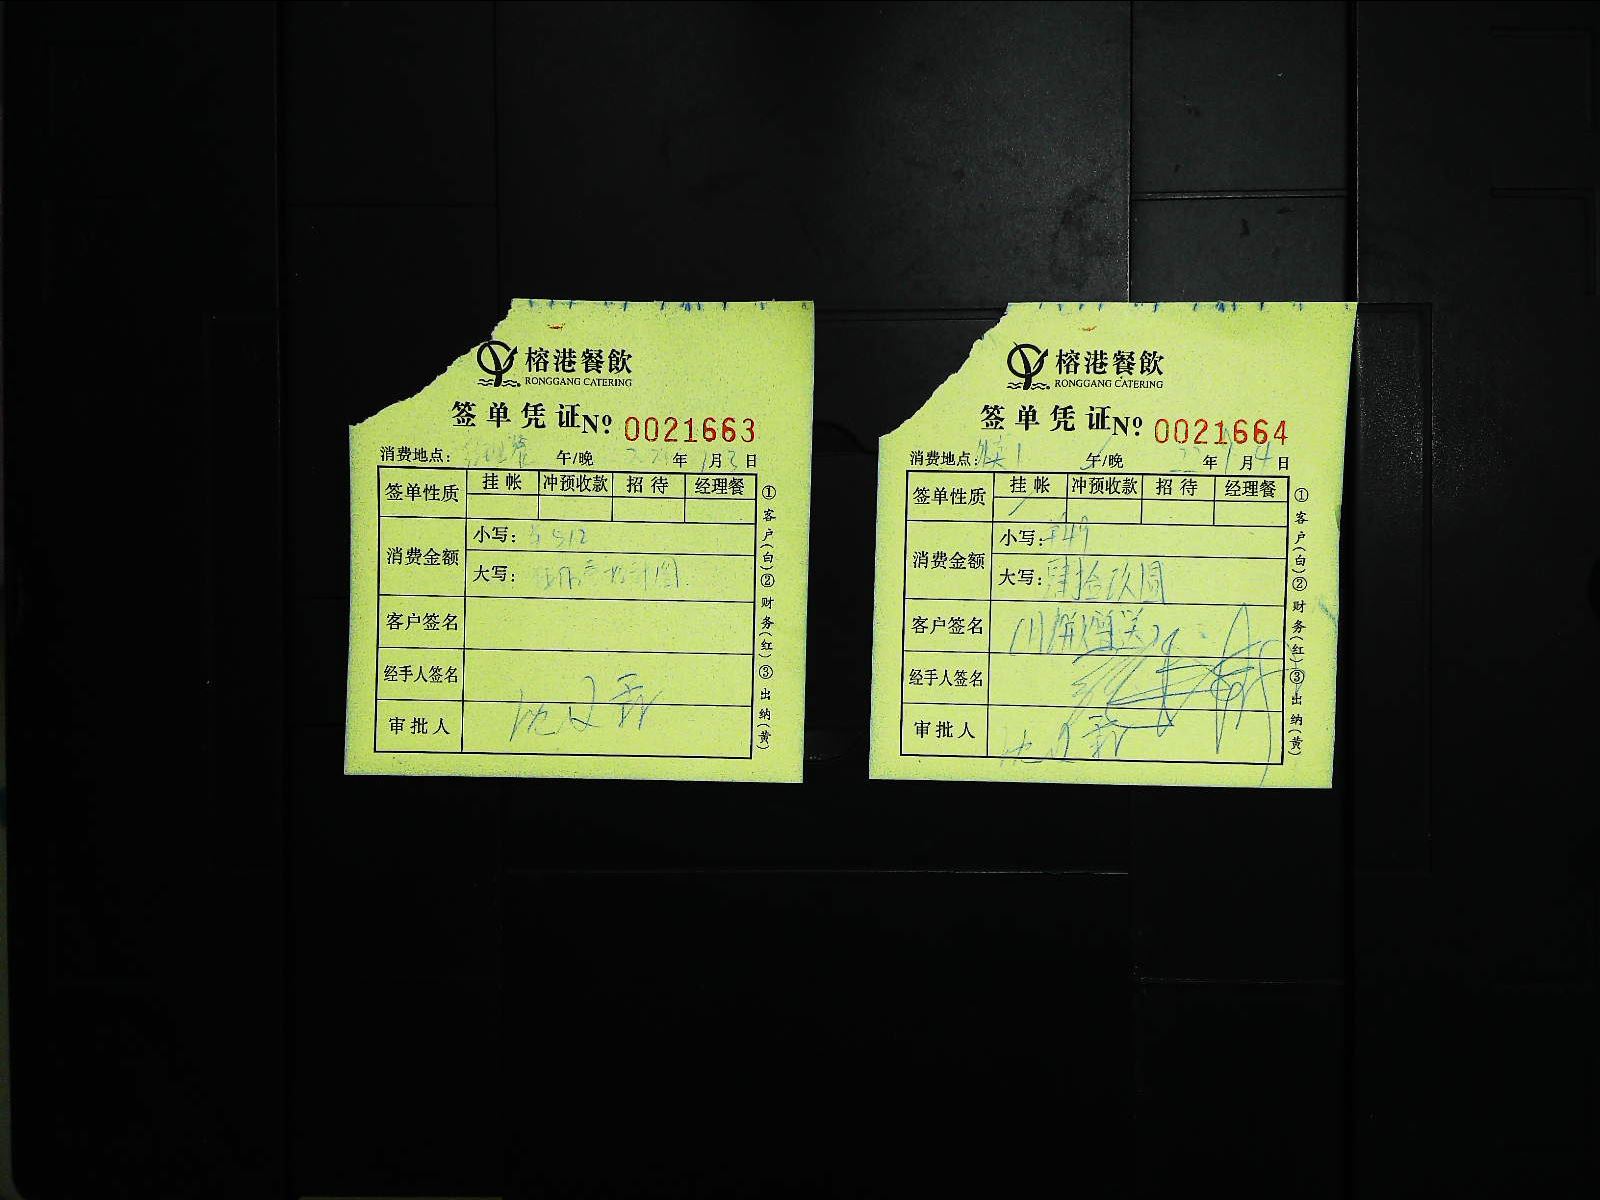 榕港餐飲
RONGGANG CATERING
签单凭证 Nº 0021663
消费地点: 经理餐 午/晚 年 1月3日
签单性质 挂帐 冲预收款 招待 经理餐
消费金额
小写: 512
大写:
客户签名
经手人签名
审批人
①客户(白)②财务(红)③出纳(黄)
榕港餐飲
RONGGANG CATERING
签单凭证 Nº 0021664
消费地点: 午/晚 22年1月4日
签单性质 挂帐 冲预收款 招待 经理餐
消费金额
小写: ¥49
大写: 肆拾玖圆
客户签名
经手人签名
审批人
①客户(白)②财务(红)③出纳(黄)